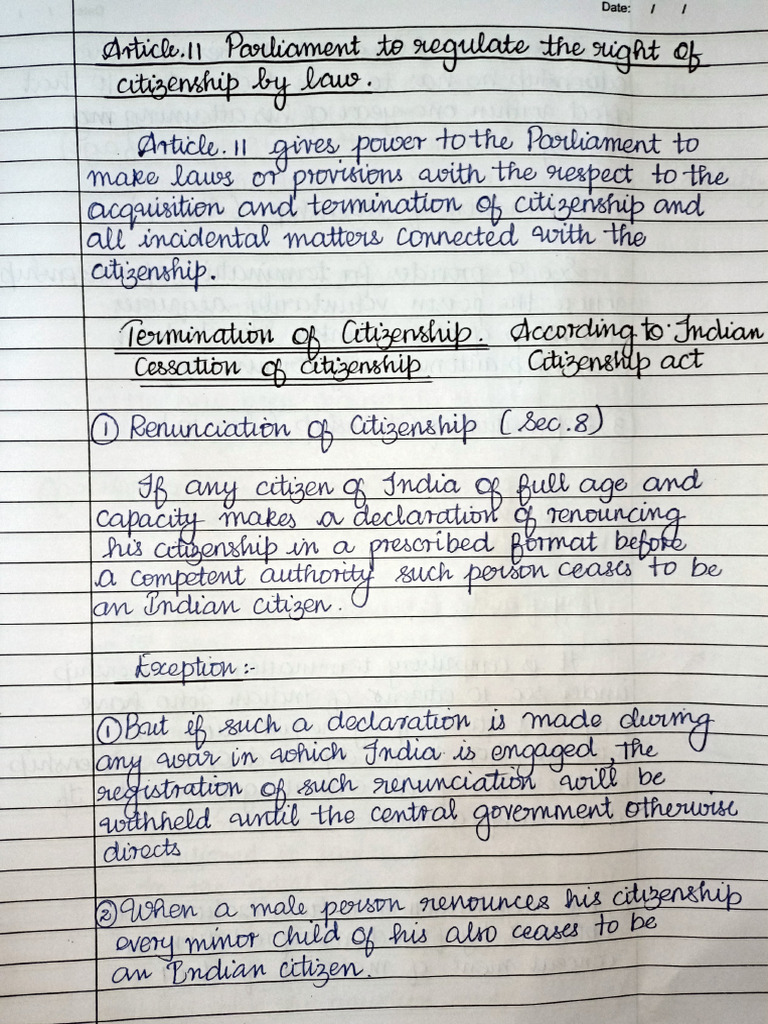 Date: / /
Article.11 Parliament to regulate the right of
citizenship by law.
Article.11 gives power to the Parliament to
make laws or provisions with the respect to the
acquisition and termination of citizenship and
all incidental matters connected with the
citizenship.
Termination of Citizenship. According to Indian
Cessation of citizenship Citizenship act
① Renunciation of Citizenship (Sec.8)
If any citizen of India of full age and
capacity makes a declaration of renouncing
his citizenship in a prescribed format before
a competent authority such person ceases to be
an Indian citizen.
Exception :-
① But if such a declaration is made during
any war in which India is engaged, the
registration of such renunciation will be
withheld until the central government otherwise
directs
② When a male person renounces his citizenship
every minor child of his also ceases to be
an Indian citizen.